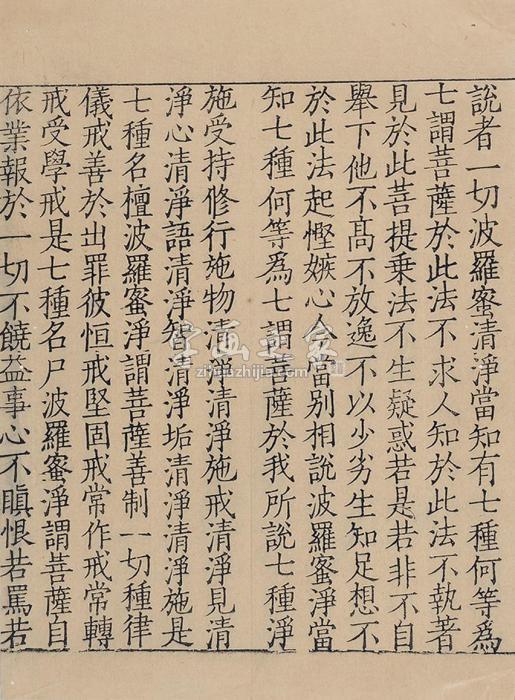 說者一切波羅蜜清淨當知有七種何等爲
七謂菩薩於此法不求人知於此法不執著
見於此菩提乗法不生疑惑若是若非不自
舉下他不髙不放逸不以少劣生知足想不
於此法起慳嫉心今當别相說波羅蜜淨當
知七種何等爲七謂菩薩於我所說七種淨
施受持修行施物清淨清淨施戒清淨見清
淨心清淨語清淨智清淨垢清淨清淨施是
七種名檀波羅蜜淨謂菩薩善制一切種律
儀戒善於出罪彼恒戒堅固戒常作戒常轉
戒受學戒是七種名尸波羅蜜淨謂菩薩自
依業報於一切不饒益事心不瞋恨若罵若
書画之家
zibizhijia.com